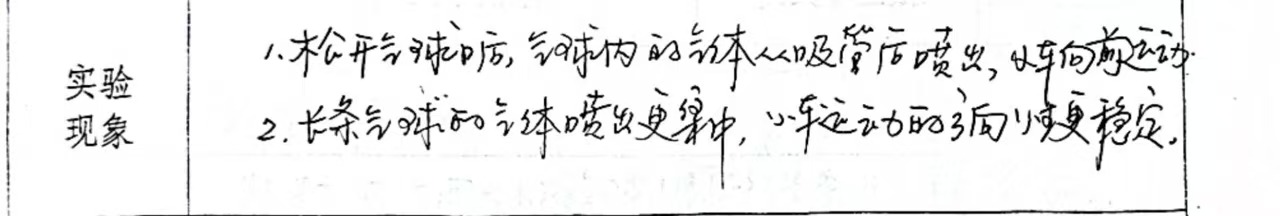 实验
现象
1.松开气球口后,气球内的气体从吸管后喷出,小车向前运动.
2.长条气球的气体喷出更集中,小车运动的方向更稳定.